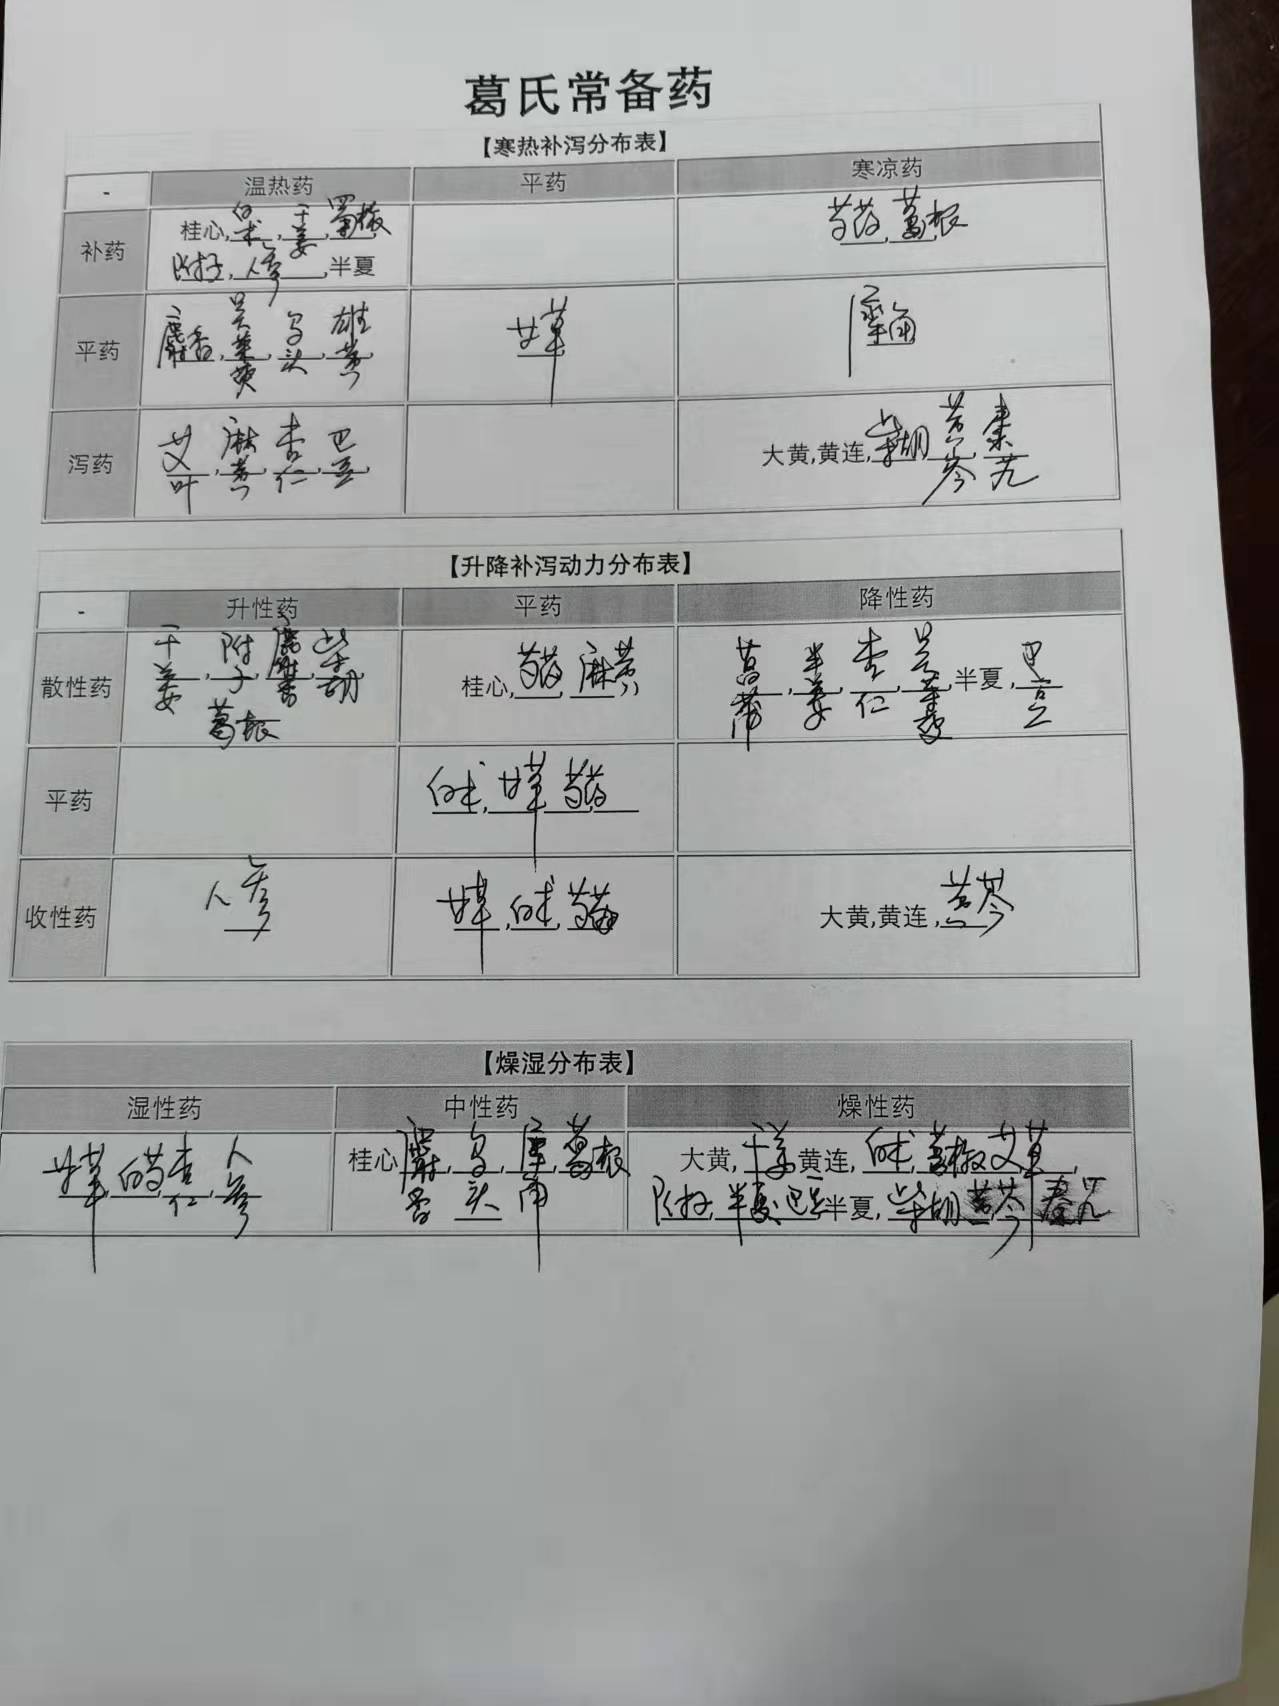 葛氏常备药
【寒热补泻分布表】
- 温热药 平药 寒凉药
补药 桂心,白术,干姜,蜀椒 芍药,葛根
附子,人参,半夏
平药 麝香,吴茱萸,乌头,雄黄 甘草 犀角
泻药 艾叶,麻黄,杏仁,巴豆, 大黄,黄连,柴胡,黄芩,秦艽
【升降补泻动力分布表】
- 升性药 平药 降性药
散性药 干姜,附子,麝香,柴胡, 桂心,芍药,麻黄 菖蒲,杏仁,吴茱萸,半夏,巴豆
葛根
平药 白术,甘草,芍药
收性药 人参 甘草,白术,芍药 大黄,黄连,黄芩
【燥湿分布表】
湿性药 中性药 燥性药
甘草,芍药,杏仁,人参 桂心,麝香,乌头,犀角,葛根 大黄,干姜,黄连,白术,蜀椒,艾
附子,半夏,巴豆,半夏,柴胡,黄芩,秦艽